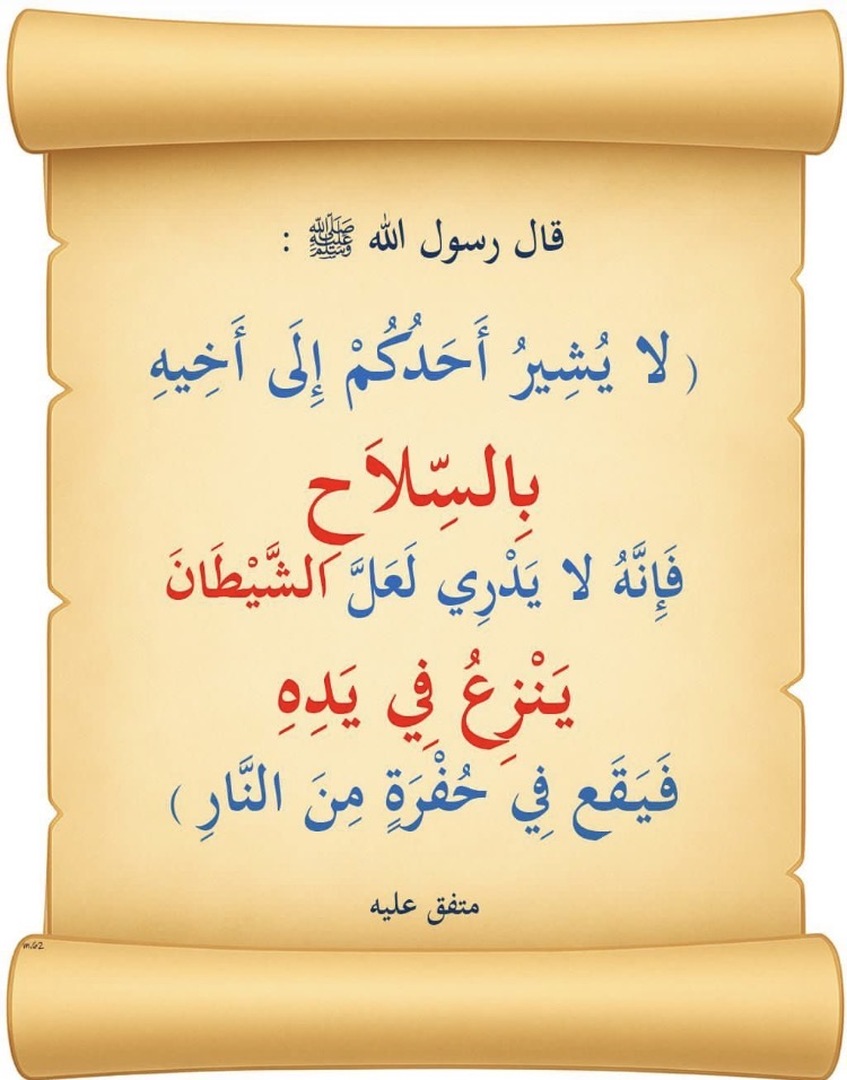 قال رسول الله ﷺ :
( لا يُشِيرُ أَحَدُكُمْ إِلَى أَخِيهِ
بِالسِّلاَحِ
فَإِنَّهُ لا يَدْرِي لَعَلَّ الشَّيْطَانَ
يَنْزِعُ فِي يَدِهِ
فَيَقَع فِي حُفْرَةٍ مِنَ النَّارِ )
متفق عليه
m.G2